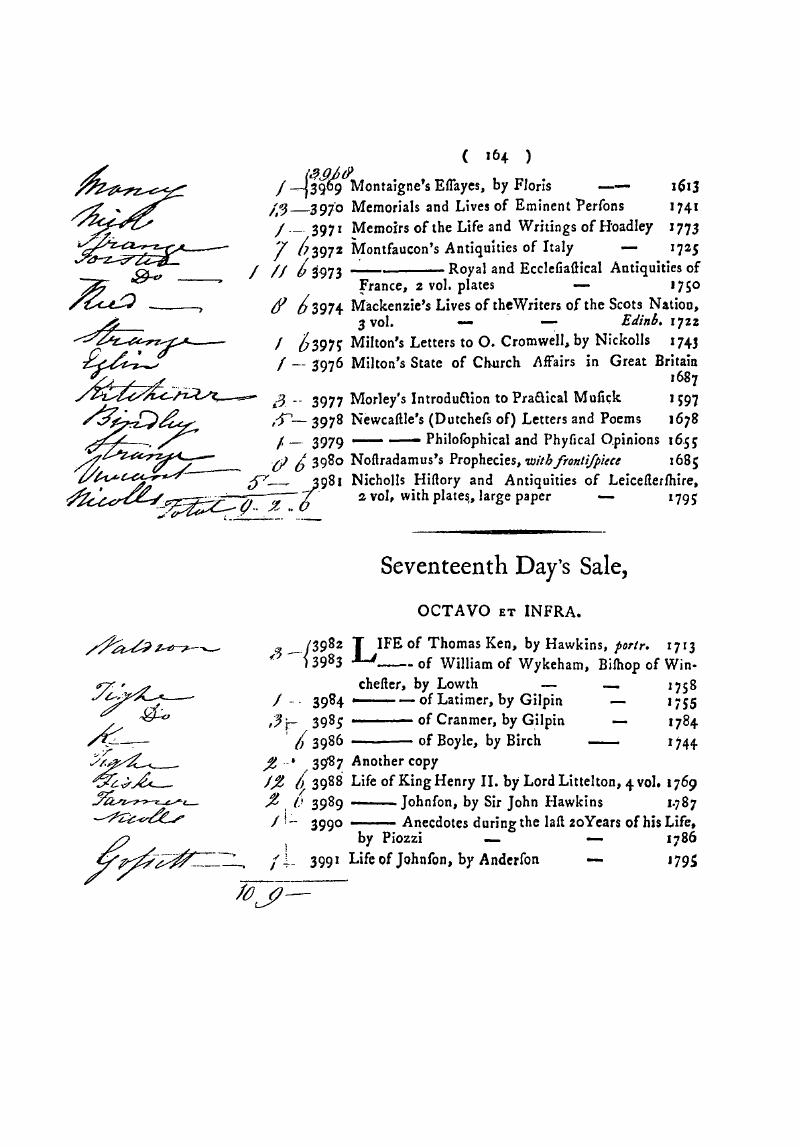 ( 164 )
3968
Money 1 — 3969 Montaigne's Eſſayes, by Floris —— 1613
13 — 3970 Memorials and Lives of Eminent Perſons 1741
1 — 3971 Memoirs of the Life and Writings of Hoadley 1773
Strange 7 6 3972 Montfaucon's Antiquities of Italy — 1725
Do — 1 11 6 3973 ———— Royal and Eccleſiaſtical Antiquities of
France, 2 vol. plates — 1750
Reed — 8 6 3974 Mackenzie's Lives of the Writers of the Scots Nation,
3 vol. — — Edinb. 1722
Strange 1 6 3975 Milton's Letters to O. Cromwell, by Nickolls 1743
Eglin 1 — 3976 Milton's State of Church Affairs in Great Britain
1687
Kitchener 3 - - 3977 Morley's Introduction to Practical Muſick 1597
Bindley 5 — 3978 Newcaſtle's (Dutcheſs of) Letters and Poems 1678
Strange 1 — 3979 — — Philoſophical and Phyſical Opinions 1655
8 6 3980 Noſtradamus's Prophecies, with frontiſpiece 1685
Nicolls 5 — 3981 Nicholls Hiſtory and Antiquities of Leiceſterſhire,
2 vol, with plates, large paper — 1795
Total 9 - 2 - 6
Seventeenth Day's Sale,
OCTAVO ET INFRA.
Waldron 3 — 3982 LIFE of Thomas Ken, by Hawkins, portr. 1713
3983 —— of William of Wykeham, Biſhop of Win-
cheſter, by Lowth — — 1758
Tighe 1 - - 3984 ——— of Latimer, by Gilpin — 1755
Do 3 - 3985 ——— of Cranmer, by Gilpin — 1784
K — 6 3986 ——— of Boyle, by Birch —— 1744
Tighe 2 - 3987 Another copy
Fiske 12 6 3988 Life of King Henry II. by Lord Littelton, 4 vol. 1769
Farmer 2 6 3989 ——— Johnſon, by Sir John Hawkins 1787
Nicolls 1 - 3990 ——— Anecdotes during the laſt 20 Years of his Life,
by Piozzi — — 1786
Goſsett — 1 - 3991 Life of Johnſon, by Anderſon — 1795
10 9 —